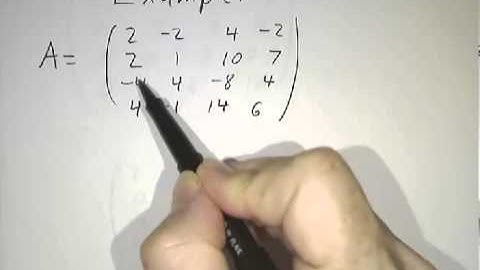 Example:
A = ( 2 -2 4 -2
2 1 10 7
-4 4 -8 4
4 -1 14 6 )